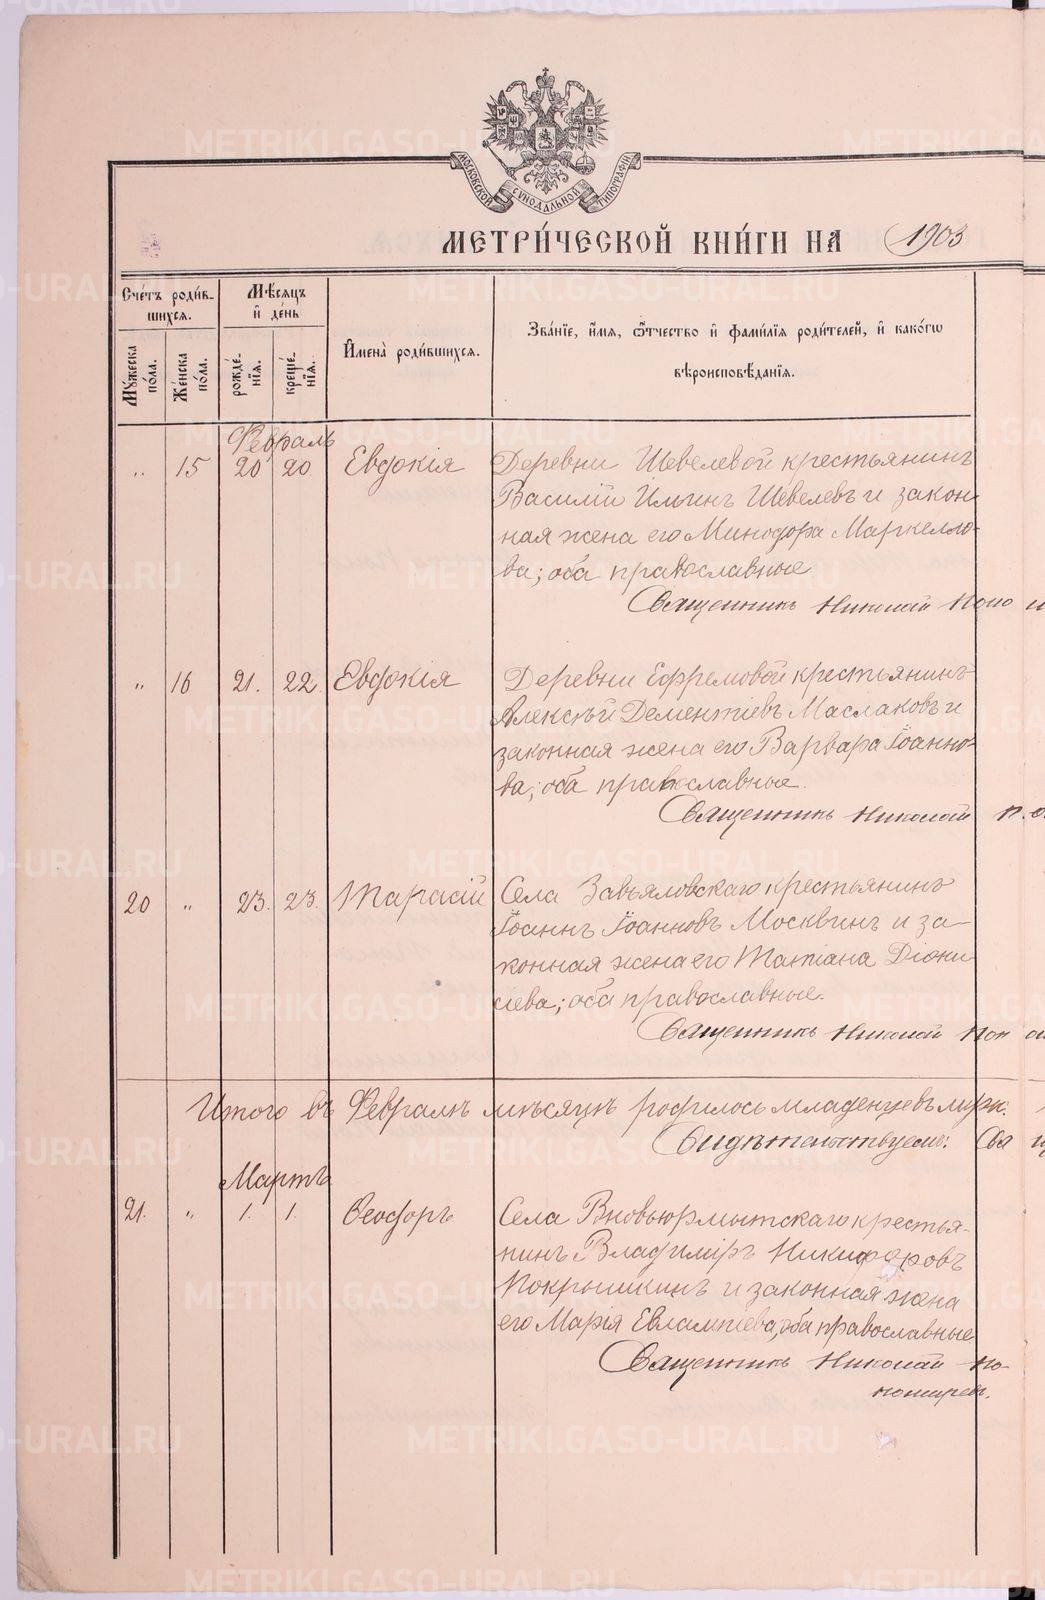 МОСКОВСКОЙ СѴНОДАЛЬНОЙ ТИПОГРАФІИ
МЕТРИ́ЧЕСКОЙ КНИ́ГИ НА 1903
Сче́тъ роди́вшихся.
Мꙋ́жеска по́ла.
Же́нска по́ла.
Мѣ́сяцъ и҆ де́нь
рожде́нїѧ.
креще́нїѧ.
И҆мена̀ роди́вшихся.
Зва́нїе, и҆́мѧ, ѻ҆́тчество и҆ фами́лїѧ роди́телей, и҆ како́гѡ
вѣроисповѣ́данїѧ.
Февраль
„ 15 20 20 Евдокія Деревни Шевелевой крестьянинъ
Василій Ильинъ Шевелевъ и закон-
ная жена его Минодора Маркелло-
ва; оба православные
Священникъ Николай Поно
„ 16 21. 22 Евдокія Деревни Ефремовой крестьянинъ
Алексѣй Дементіевъ Маслаковъ и
законная жена его Варвара Іоанно-
ва; оба православные.
Священникъ Николай
20 „ 23. 23. Тарасій Села Завьяловскаго крестьянинъ
Іоаннъ Іоанновъ Москвинъ и за-
конная жена его Татіана Діони
сіева; оба православные.
Священникъ Николай Пон
Итого въ Февралѣ мѣсяцѣ родилось младенцевъ муж.
Свидѣтельствуемъ: Свя
Мартъ
21. „ 1. 1. Ѳеодоръ Села Вновьюрмытскаго крестья-
нинъ Владиміръ Никифоровъ
Покрышкинъ и законная жена
его Марія Евлампіева, оба православные
Священникъ Николай По-
номарев.
METRIKI.GASO-URAL.RU